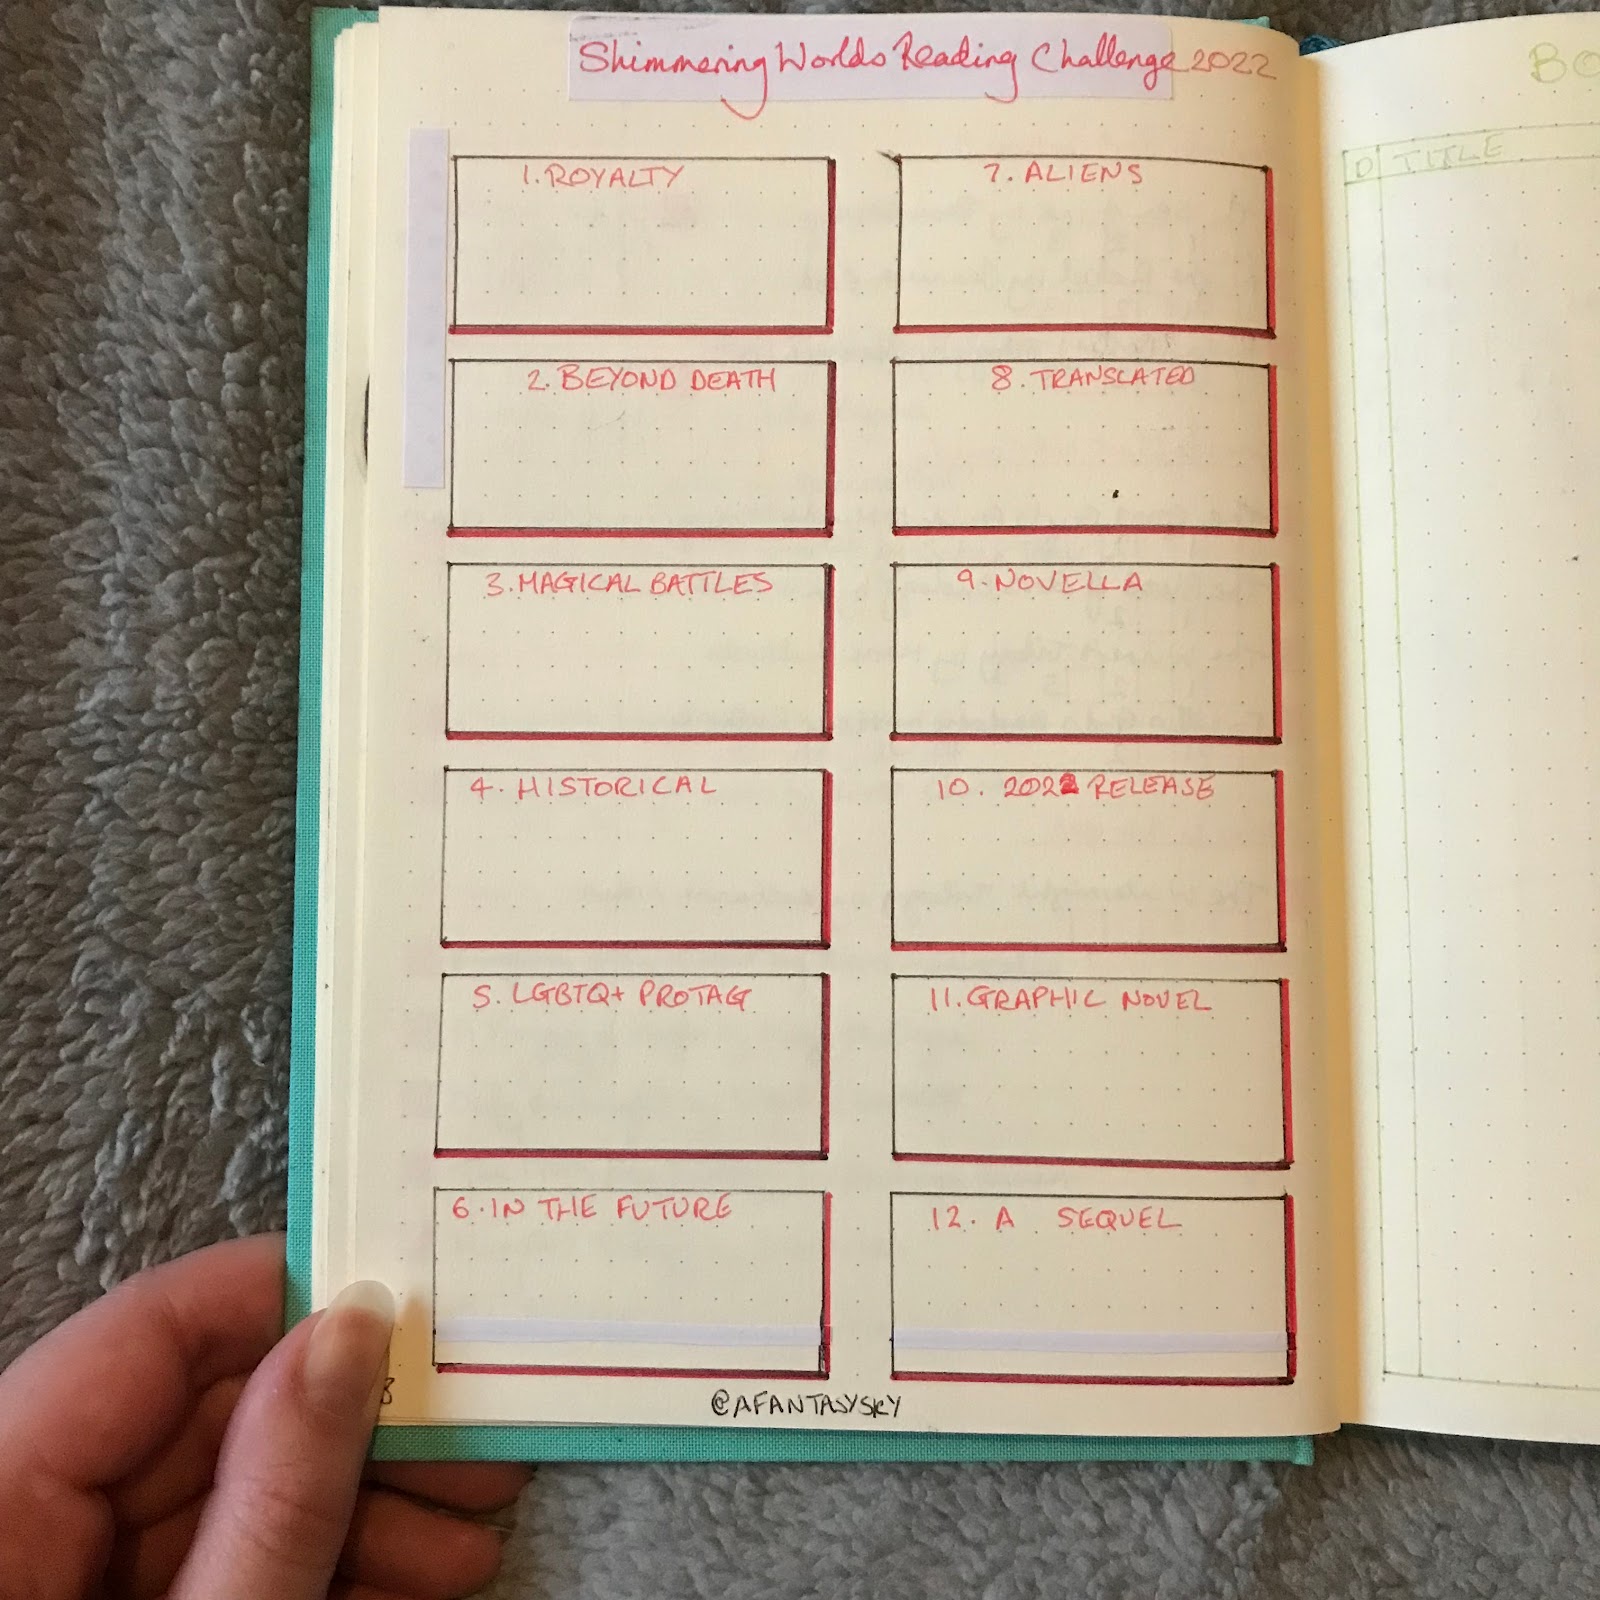 Shimmering Worlds Reading Challenge 2022
1. ROYALTY
2. BEYOND DEATH
3. MAGICAL BATTLES
4. HISTORICAL
5. LGBTQ+ PROTAG
6. IN THE FUTURE
7. ALIENS
8. TRANSLATED
9. NOVELLA
10. 2022 RELEASE
11. GRAPHIC NOVEL
12. A SEQUEL
@AFANTASYSKY
BO
D TITLE